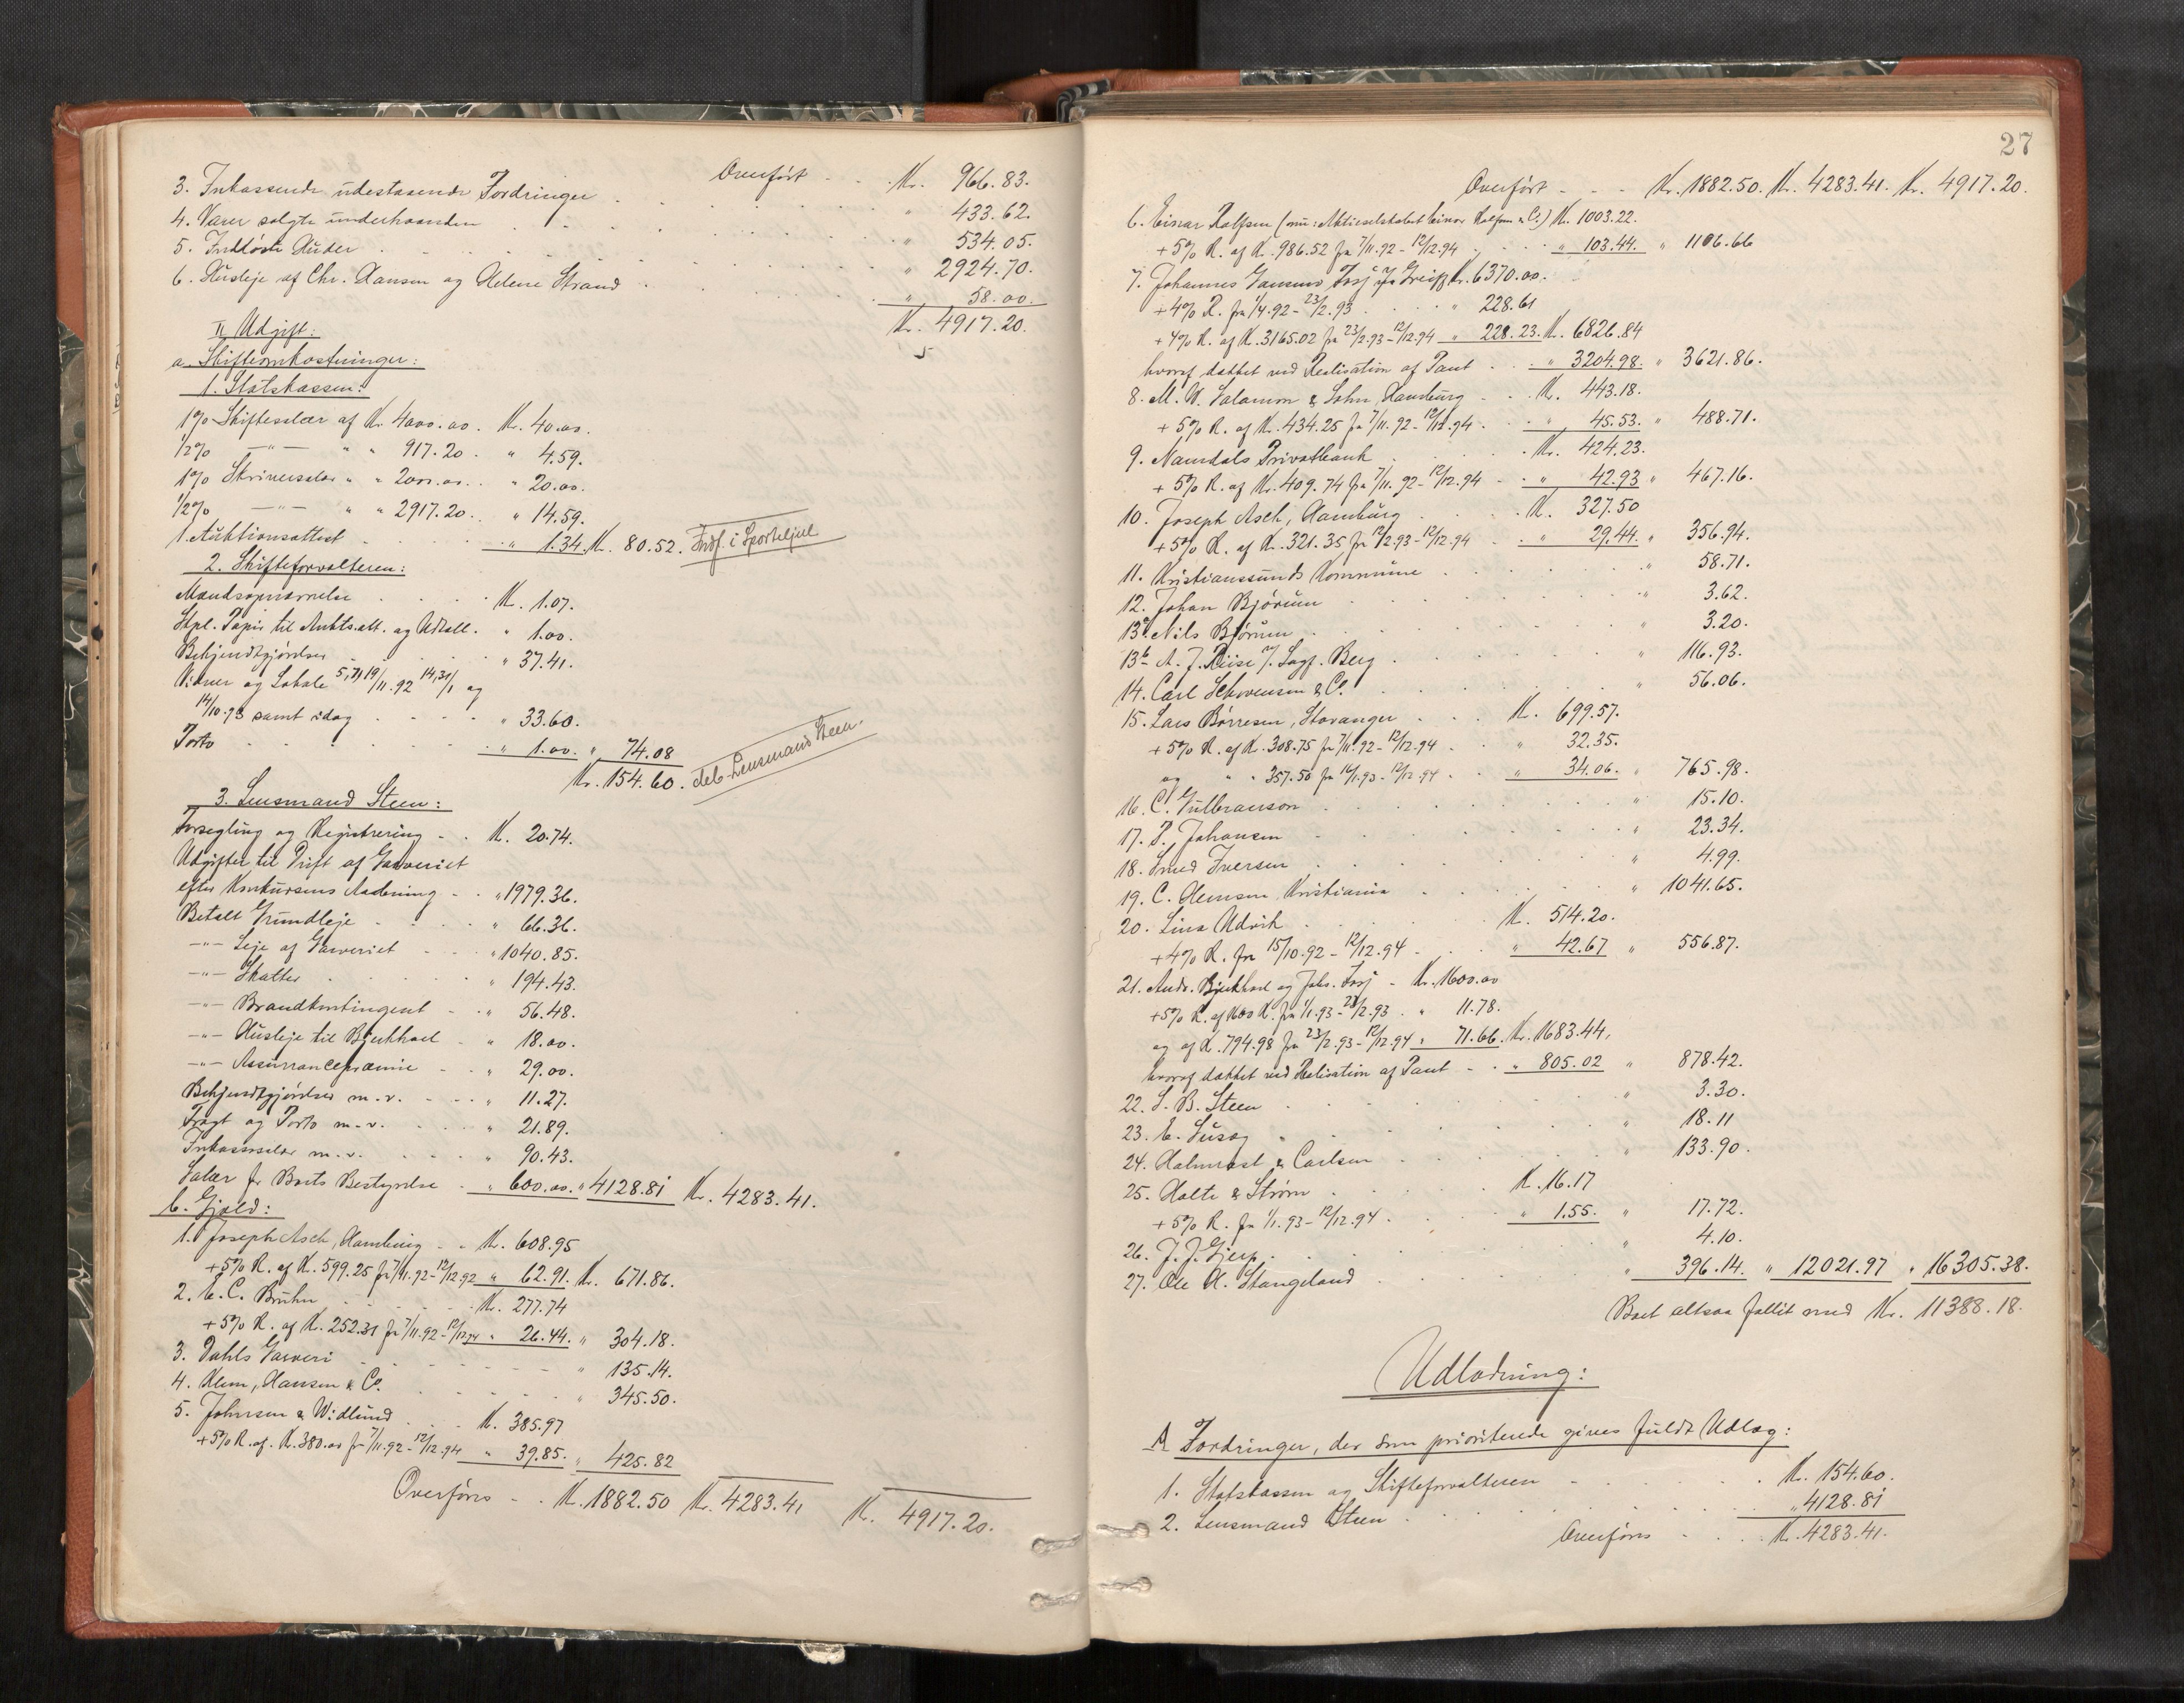 Overført - - Kr. 966.83.
3. Inkasserede udestaaende Fordringer . . . " 433.62.
4. Varer solgte underhaanden . . . " 534.05.
5. Indløste Huder . . . " 2924.70.
6. Husleje af Chr. Hansen og Helene Strand . . . " 58.00.
Kr. 4917.20.
II Udgift:
a. Skifteomkostninger:
1. Statskassen:
1% Skiftesalær af Kr. 4000.00. Kr. 40.00.
1/2% —"— " " 917.20. " 4.59.
1% Skriversalær " " 2000.00. " 20.00.
1/2% —"— " " 2917.20. " 14.59.
1 Auktionsattest . . . " 1.34. Kr. 80.52. Indf. i Sporteljul
2. Skifteforvalteren:
Mandsopnævnelse . . . Kr. 1.07.
Stpl. Papir til Aukts.att. og Udtall. " 1.00.
Bekjendtgjørelser . . . " 37.41.
Vidner og Lokale 5, 7, 19/11.92 14, 31/1 og
14/10.93 samt idag . . . " 33.60.
Porto . . . " 1.00. " 74.08
Kr. 154.60. deb. Lensmand Steen.
3. Lensmand Steen:
Forsegling og Registrering - . Kr. 20.74.
Udgifter til Drift af Garveriet
efter Konkursens Aabning - . " 1979.36.
Betalt Grundleje . . . " 66.36.
—"— Leje af Garveriet . . . " 1040.85.
—"— Skatter . . . " 194.43.
—"— Brandkontingent . . . " 56.48.
—"— Husleje til Bjerkhoel - " 18.00.
—"— Assurancepræmie - . " 29.00.
Bekjendtgjørelser m.v. . . . " 11.27.
Fragt og Porto m.v. . . . " 21.89.
Inkassosalær m.v. . . . " 90.43.
Salær for Boets Bestyrelse - " 600.00. " 4128.81 Kr. 4283.41.
b. Gjæld:
1. Joseph Asch, Hamburg - . Kr. 608.95
+ 5% R. af K. 599.25 fra 7/11.92 - 12/12.92 " 62.91. Kr. 671.86.
2. E. C. Bruhn . . . Kr. 277.74
+ 5% R. af K. 252.31 fra 7/11.92 - 12/12.94 " 26.44. " 304.18.
3. Dahls Garveri . . . " 135.14.
4. Klem, Hansen & Co. . . . " 345.50.
5. Johnsen & Widlund . . . K. 385.97
+ 5% R. af K. 380.00 fra 7/11.92 - 12/12.94 " 39.85. " 425.82
Overføres - . K. 1882.50 Kr. 4283.41 K. 4917.20.
27
Overført - - - Kr. 1882.50. Kr. 4283.41. Kr. 4917.20.
6. Einar Rolfsen (nu: Aktieselskabet Einar Rolfsen & Co.) K. 1003.22.
+ 5% R. af K. 986.52 fra 7/11.92 - 12/12.94 . . . " 103.44. " 1106.66
7. Johannes Kr. 6370.00.
+ 4% R. fra 1/4.92 - 23/2.93 . . . " 228.61
+ 4% R. af K. 3165.02 fra 23/2.93 - 12/12.94 " 228.23. K. 6826.84
hvoraf dækket ved Realisation af Pant . . " 3204.98. " 3621.86.
8. M. W. Salamon & Sohn, Hamburg - . K. 443.18.
+ 5% R. af K. 434.25 fra 7/11.92 - 12/12.94 . . " 45.53. " 488.71.
9. Namdals Privatbank . . . Kr. 424.23.
+ 5% R. af Kr. 409.74 fra 7/11.92 - 12/12.94 - . " 42.93 " 467.16.
10. Joseph Asch, Hamburg . . . K. 327.50
+ 5% R. af Kr. 321.35 fra 12/2.93 - 12/12.94 . . " 29.44. " 356.94.
11. Kristianssunds Kommune . . . " 58.71.
12. Johan Bjørum . . . " 3.62.
13a. Nils Bjørum . . . " 3.20.
13b. A. J. Riise f. Sagf. Berg . . . " 116.93.
14. Carl & Co. . . . " 56.06.
15. Lars Børresen, Stavanger . . . K. 699.57.
+ 5% R. af K. 308.75 fra 7/11.92 - 12/12.94 . . " 32.35.
og " " 357.50 fra 16/1.93 - 12/12.94 . . " 34.06. " 765.98.
16. C. Gulbranson . . . " 15.10.
17. P. Johansen . . . " 23.34.
18. Smed Iversen . . . " 4.99.
19. C. Clemsen, Kristiania . . . " 1041.65.
20. Lina Udvik . . . K. 514.20.
+ 4% R. fra 15/10.92 - 12/12.94 . . . " 42.67 " 556.87.
21. Andr. Bjerkhoel og Johs. - Kr. 1600.00
+ 5% R. af 1600 K. fra 1/1.93 - 23/2.93 . " 11.78.
og af K. 794.98 fra 23/2.93 - 12/12.94 " 71.66. Kr. 1683.44,
hvoraf dækket ved Realisation af Pant - . " 805.02 " 878.42.
22. S. B. Steen . . . " 3.30.
23. E. " . . . " 18.11
24. Halmrast & Carlsen . . . " 133.90.
25. Holte & Strøm . . . K. 16.17
+ 5% R. fra 1/1.93 - 12/12.94 . . . " 1.55. " 17.72.
26. J. J. . . . " 4.10.
27. Ole H. Stangeland . . . " 396.14. " 12021.97 " 16305.38.
Boet altsaa fallit med Kr. 11388.18.
Udlodning:
A Fordringer, der som prioriterede gives fuldt Udlæg:
1. Statskassen og Skifteforvalteren . . . K. 154.60.
2. Lensmand Steen . . . " 4128.81
Overføres . . . K. 4283.41.